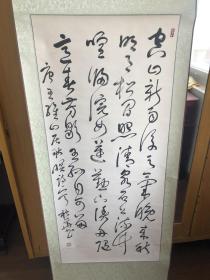 空山新雨後天氣晚來秋
明月松間照清泉石上流竹
喧歸浣女蓮動下漁舟隨
意春芳歇王孫自可留
唐王維山居秋暝